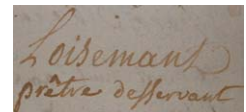 Loisemant
prêtre desservant